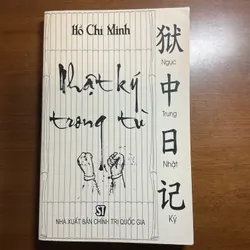 Hồ Chí Minh
Nhật ký
trong tù
狱
Ngục
中
Trung
日
Nhật
记
Ký
NHÀ XUẤT BẢN CHÍNH TRỊ QUỐC GIA